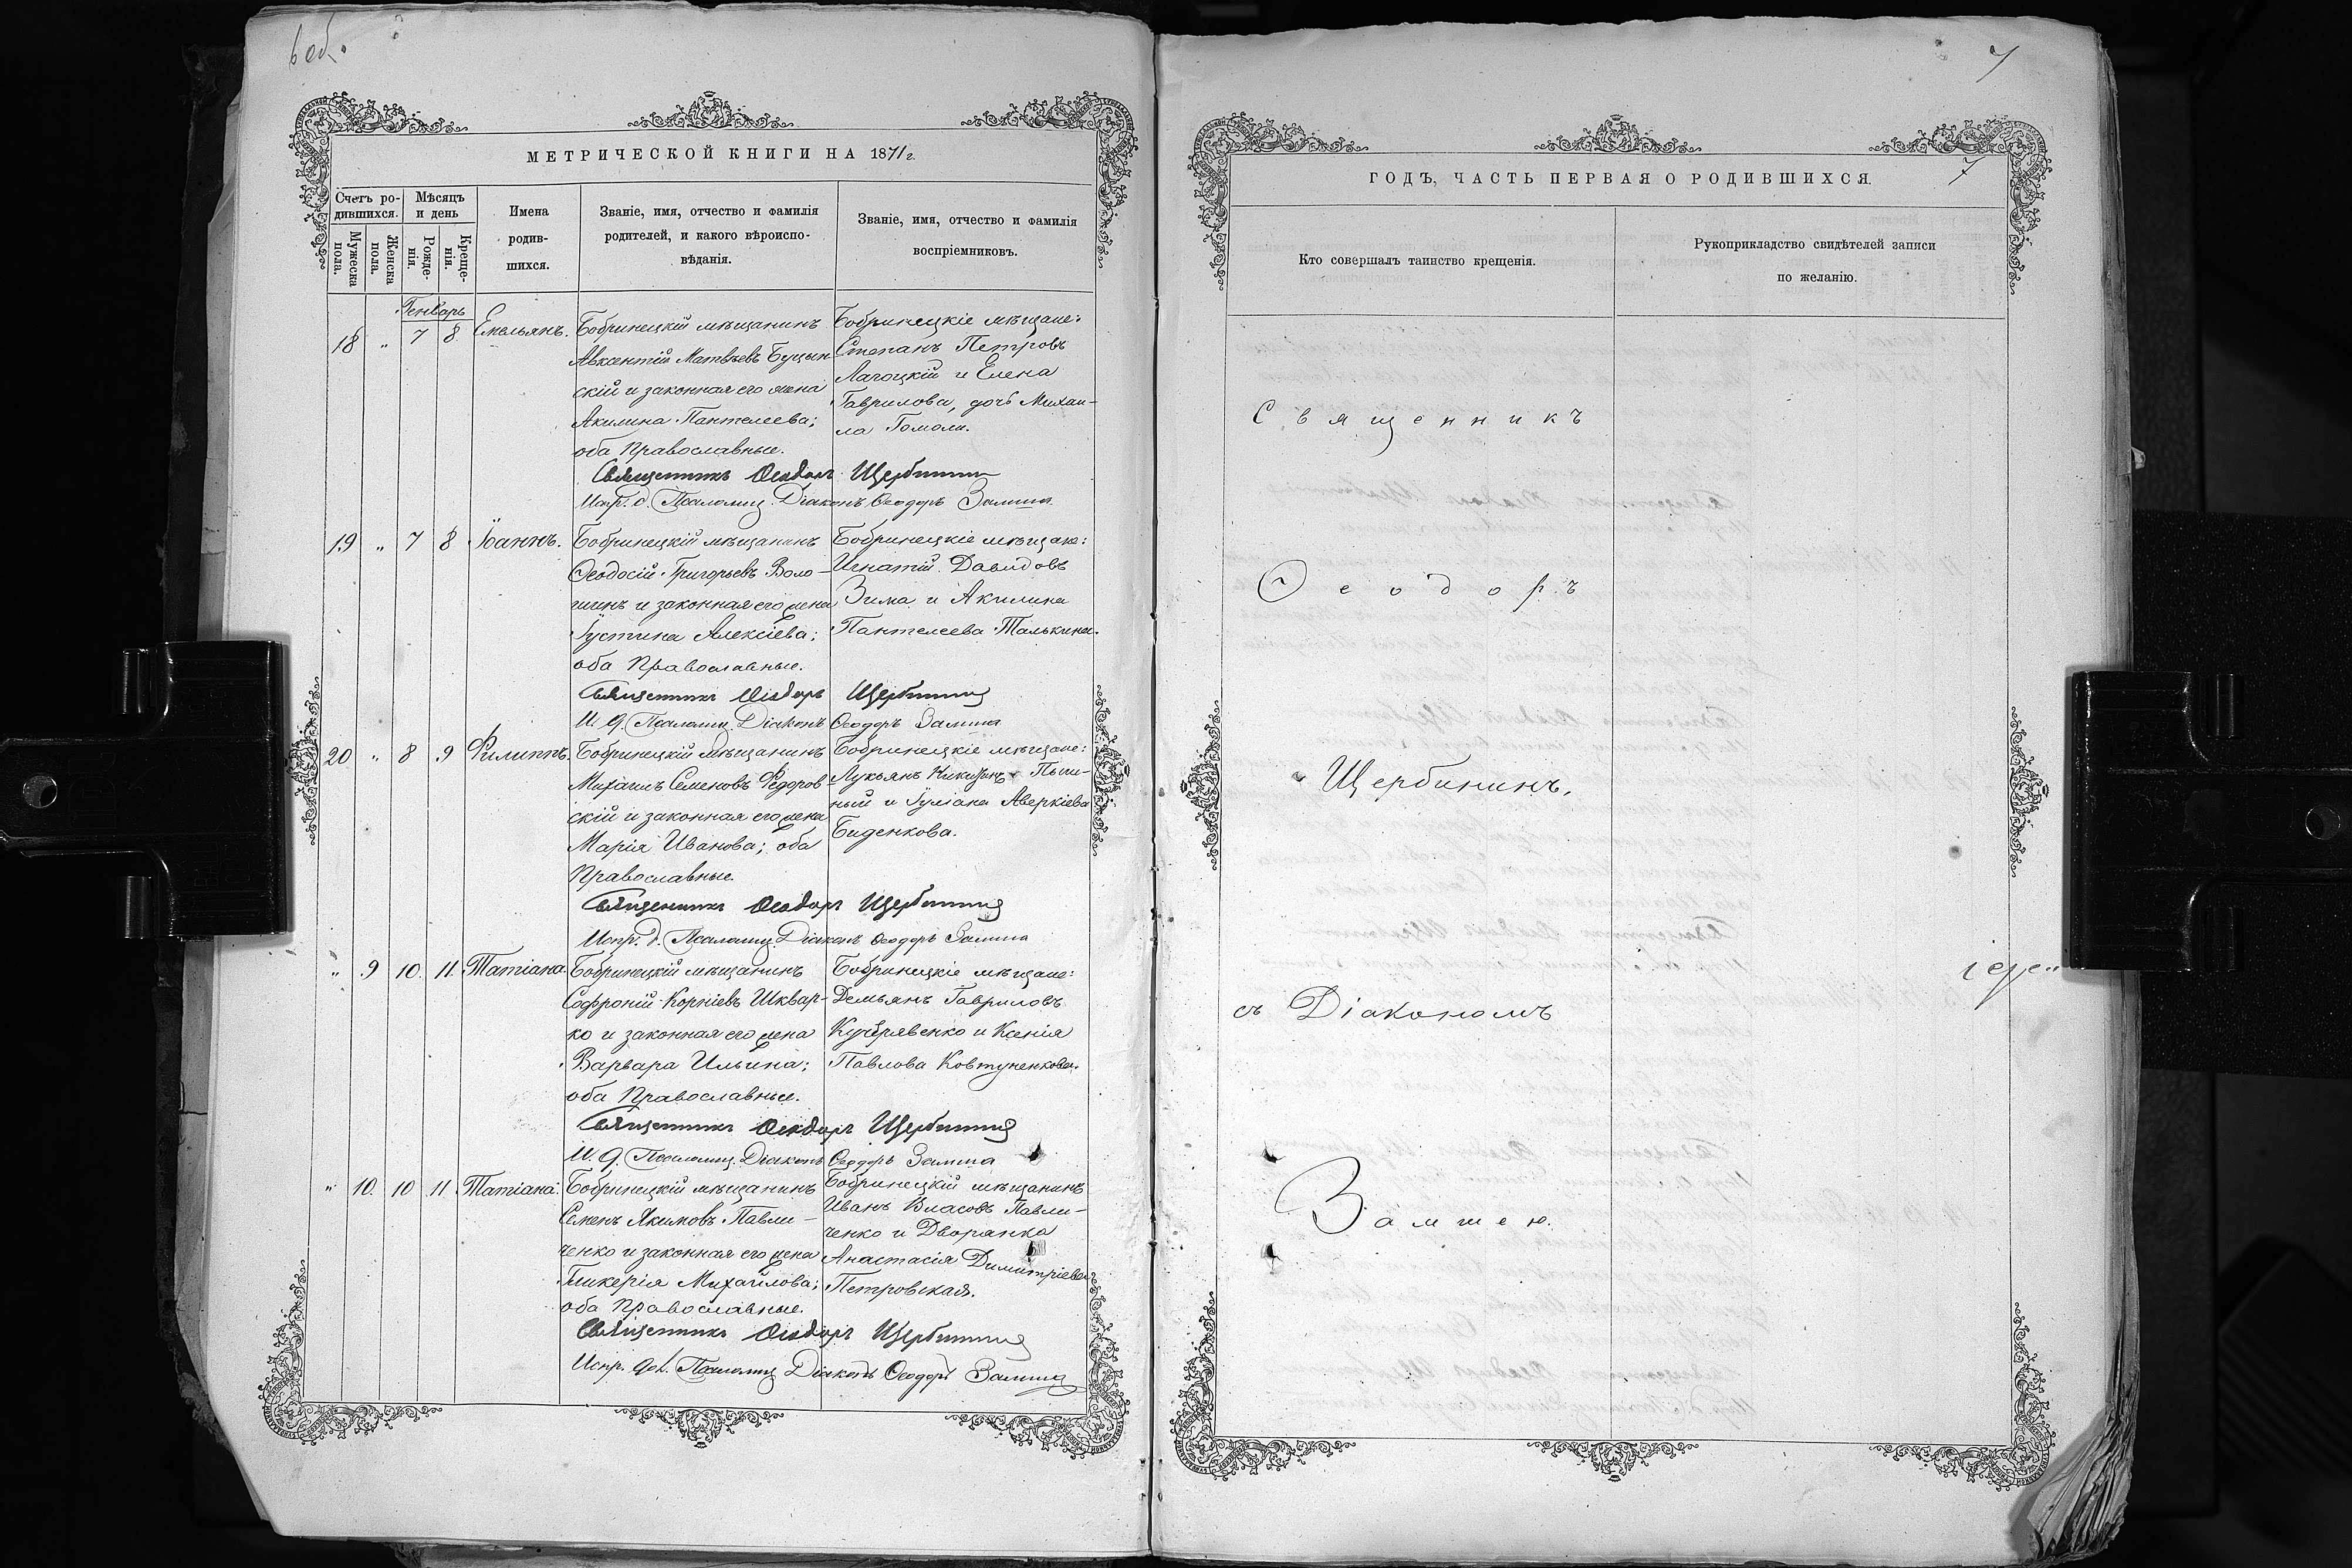 6 об.
МЕТРИЧЕСКОЙ КНИГИ НА 1871 г.
Счетъ ро-
дившихся.
Мужеска
пола.
Женска
пола.
Мѣсяцъ
и день
Рожде-
нія.
Креще-
нія.
Имена
родив-
шихся.
Званіе, имя, отчество и фамилія
родителей, и какого вѣроиспо-
вѣданія.
Званіе, имя, отчество и фамилія
воспріемниковъ.
Генварь
18 " 7 8 Емельянъ.
Бобринецкій мѣщанинъ
Авксентій Матвѣевъ Буцын-
скій и законная его жена
Акилина Пантелеева;
оба Православные.
Бобринецкіе мѣщане:
Степанъ Петровъ
Лагоцкій и Елена
Гаврилова, дочь Михаи-
ла Гомоли.
Священникъ Ѳеодоръ Щербининъ
Испр. д. Псаломщ. Діаконъ Ѳеодоръ Замша
19 " 7 8 Іоаннъ.
Бобринецкій мѣщанинъ
Ѳеодосій Григорьевъ Воло-
шинъ и законная его жена
Іустина Алексіева;
оба Православные.
Бобринецкіе мѣщане:
Игнатій Давидовъ
Зима и Акилина
Пантелеева Талькина.
Священникъ Ѳеодоръ Щербининъ
И. д. Псаломщ. Діаконъ Ѳеодоръ Замша
20 " 8 9 Филиппъ.
Бобринецкій мѣщанинъ
Михаилъ Семеновъ Федоров-
скій и законная его жена
Марія Иванова; оба
Православные.
Бобринецкіе мѣщане:
Лукьянъ
ный и Іуліана Аверкіева
Биденкова.
Священникъ Ѳеодоръ Щербининъ
Испр. д. Псаломщ. Діаконъ Ѳеодоръ Замша
" 9 10. 11. Татіана.
Бобринецкій мѣщанинъ
Софроній Корніевъ Шквар-
ко и законная его жена
Варвара Ильина;
оба Православные.
Бобринецкіе мѣщане:
Демьянъ Гавриловъ
Кучерявенко и Ксенія
Павлова Ковтуненкова.
Священникъ Ѳеодоръ Щербининъ
И. д. Псаломщ. Діаконъ Ѳеодоръ Замша
" 10. 10 11 Татіана.
Бобринецкій мѣщанинъ
Семенъ Якимовъ Павли-
ченко и законная его жена
Гликерія Михайлова;
оба Православные.
Бобринецкій мѣщанинъ
Иванъ Власовъ Павли-
ченко и Дворянка
Анастасія Димитріева
Петровская.
Священникъ Ѳеодоръ Щербининъ
Испр. дол. Псаломщ. Діаконъ Ѳеодоръ Замша
7
7
ГОДЪ, ЧАСТЬ ПЕРВАЯ О РОДИВШИХСЯ.
Кто совершалъ таинство крещенія.
Рукоприкладство свидѣтелей записи
по желанію.
Священникъ
Ѳеодоръ
Щербининъ,
съ Діакономъ
Замшею.